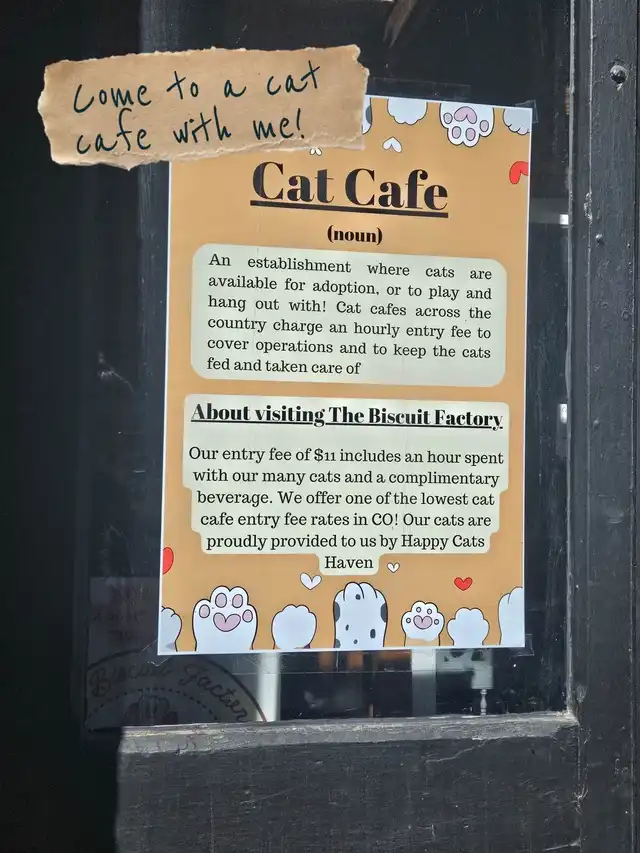 Come to a cat
cafe with me!
Cat Cafe
(noun)
An establishment where cats are
available for adoption, or to play and
hang out with! Cat cafes across the
country charge an hourly entry fee to
cover operations and to keep the cats
fed and taken care of
About visiting The Biscuit Factory
Our entry fee of $11 includes an hour spent
with our many cats and a complimentary
beverage. We offer one of the lowest cat
cafe entry fee rates in CO! Our cats are
proudly provided to us by Happy Cats
Haven
Biscuit Factory